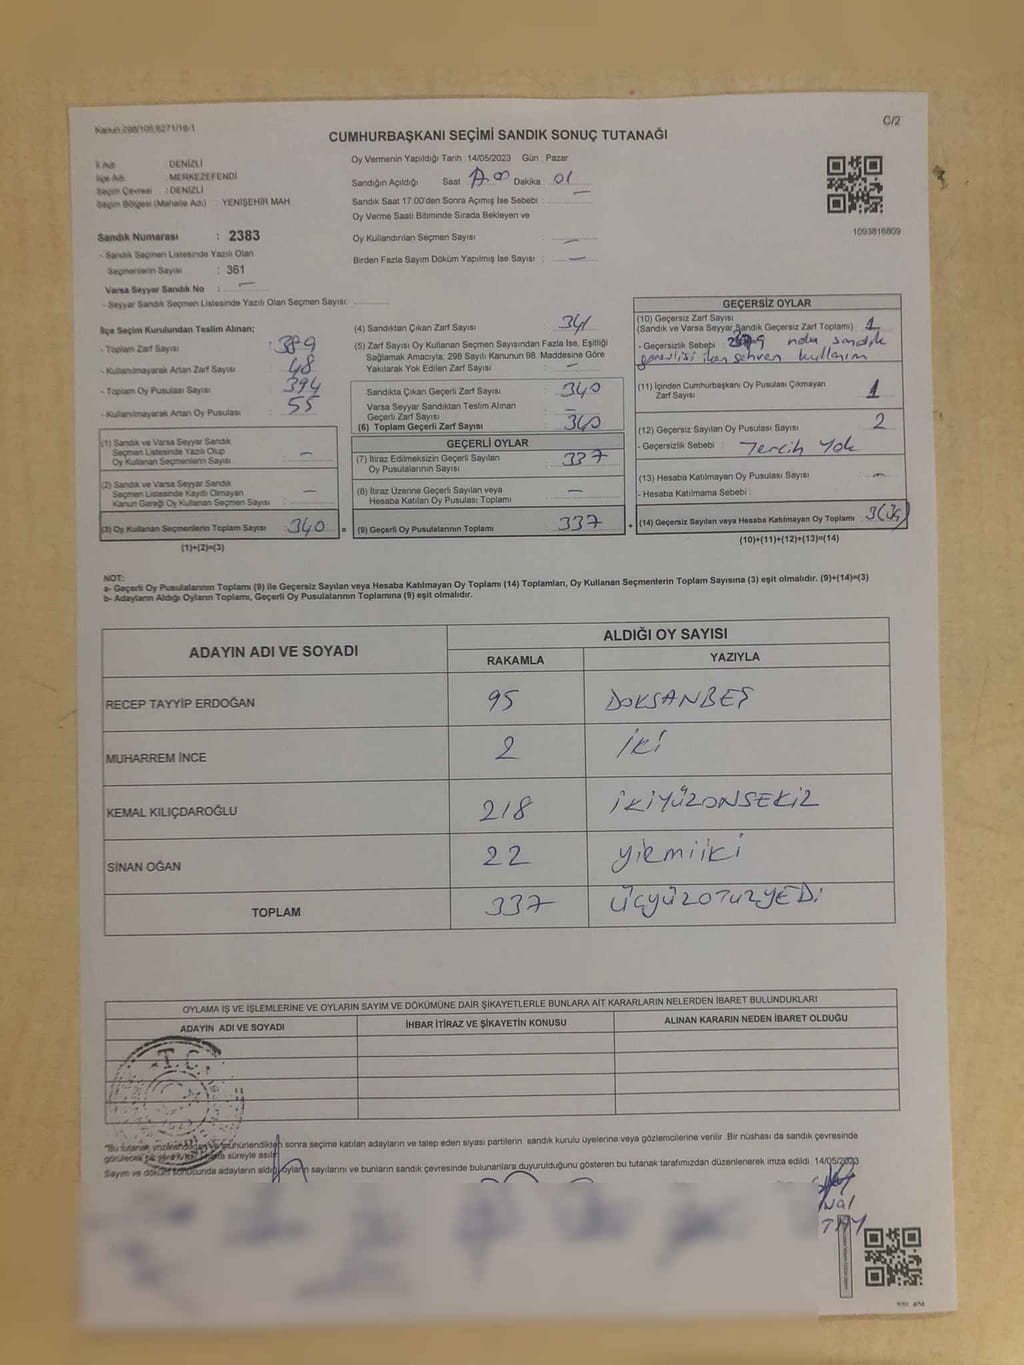 Kanun 298/105,6271/18-1
C/2
CUMHURBAŞKANI SEÇİMİ SANDIK SONUÇ TUTANAĞI
İl Adı : DENİZLİ
İlçe Adı : MERKEZEFENDİ
Seçim Çevresi : DENİZLİ
Seçim Bölgesi (Mahalle Adı) : YENİŞEHİR MAH
Sandık Numarası : 2383
- Sandık Seçmen Listesinde Yazılı Olan
Seçmenlerin Sayısı : 361
Varsa Seyyar Sandık No : —
- Seyyar Sandık Seçmen Listesinde Yazılı Olan Seçmen Sayısı:
Oy Vermenin Yapıldığı Tarih : 14/05/2023 Gün : Pazar
Sandığın Açıldığı Saat Dakika 01
Sandık Saat 17:00'den Sonra Açımış İse Sebebi : —
Oy Verme Saati Bitiminde Sırada Bekleyen ve
Oy Kullandırılan Seçmen Sayısı : —
Birden Fazla Sayım Döküm Yapılmış İse Sayısı : —
1093816809
İlçe Seçim Kurulundan Teslim Alınan;
- Toplam Zarf Sayısı : 389
- Kullanılmayarak Artan Zarf Sayısı : 48
- Toplam Oy Pusulası Sayısı : 394
- Kullanılmayarak Artan Oy Pusulası : 55
(1) Sandık ve Varsa Seyyar Sandık
Seçmen Listesinde Yazılı Olup
Oy Kullanan Seçmenlerin Sayısı : —
(2) Sandık ve Varsa Seyyar Sandık
Seçmen Listesinde Kayıtlı Olmayan
Kanun Gereği Oy Kullanan Seçmen Sayısı : —
(3) Oy Kullanan Seçmenlerin Toplam Sayısı 340 =
(1)+(2)=(3)
(4) Sandıktan Çıkan Zarf Sayısı : 341
(5) Zarf Sayısı Oy Kullanan Seçmen Sayısından Fazla İse, Eşitliği
Sağlamak Amacıyla; 298 Sayılı Kanunun 98. Maddesine Göre
Yakılarak Yok Edilen Zarf Sayısı : —
Sandıkta Çıkan Geçerli Zarf Sayısı : 340
Varsa Seyyar Sandıktan Teslim Alınan
Geçerli Zarf Sayısı : —
(6) Toplam Geçerli Zarf Sayısı : 340
GEÇERLİ OYLAR
(7) İtiraz Edilmeksizin Geçerli Sayılan
Oy Pusulalarının Sayısı : 337
(8) İtiraz Üzerine Geçerli Sayılan veya
Hesaba Katılan Oy Pusulası Toplamı : —
(9) Geçerli Oy Pusulalarının Toplamı : 337 +
GEÇERSİZ OYLAR
(10) Geçersiz Zarf Sayısı
(Sandık ve Varsa Seyyar Sandık Geçersiz Zarf Toplamı) : 1
- Geçersizlik Sebebi : nolu sandık
görevlisi sehven kullanım
(11) İçinden Cumhurbaşkanı Oy Pusulası Çıkmayan
Zarf Sayısı : 1
(12) Geçersiz Sayılan Oy Pusulası Sayısı : 2
- Geçersizlik Sebebi : Tercih Yok
(13) Hesaba Katılmayan Oy Pusulası Sayısı : —
- Hesaba Katılmama Sebebi :
(14) Geçersiz Sayılan veya Hesaba Katılmayan Oy Toplamı : 3(üç)
(10)+(11)+(12)+(13)=(14)
NOT:
a- Geçerli Oy Pusulalarının Toplamı (9) ile Geçersiz Sayılan veya Hesaba Katılmayan Oy Toplamı (14) Toplamları, Oy Kullanan Seçmenlerin Toplam Sayısına (3) eşit olmalıdır. (9)+(14)=(3)
b- Adayların Aldığı Oyların Toplamı, Geçerli Oy Pusulalarının Toplamına (9) eşit olmalıdır.
ADAYIN ADI VE SOYADI
ALDIĞI OY SAYISI
RAKAMLA YAZIYLA
RECEP TAYYİP ERDOĞAN 95 DOKSANBEŞ
MUHARREM İNCE 2 İKİ
KEMAL KILIÇDAROĞLU 218 İKİYÜZONSEKİZ
SİNAN OĞAN 22 yirmiiki
TOPLAM 337 ÜÇYÜZOTUZYEDİ
OYLAMA İŞ VE İŞLEMLERİNE VE OYLARIN SAYIM VE DÖKÜMÜNE DAİR ŞİKAYETLERLE BUNLARA AİT KARARLARIN NELERDEN İBARET BULUNDUKLARI
ADAYIN ADI VE SOYADI İHBAR İTİRAZ VE ŞİKAYETİN KONUSU ALINAN KARARIN NEDEN İBARET OLDUĞU
T.C.
*Bu tutanak sonra seçime katılan adayların ve talep eden siyasi partilerin sandık kurulu üyelerine veya gözlemcilerine verilir .Bir nüshası da sandık çevresinde
görülecek bir yere süreyle asılır
Sayım ve döküm sonucunda adayların aldığı oyların sayılarını ve bunların sandık çevresinde bulunanlara duyurulduğunu gösteren bu tutanak tarafımızdan düzenlenerek imza edildi 14/05/2023